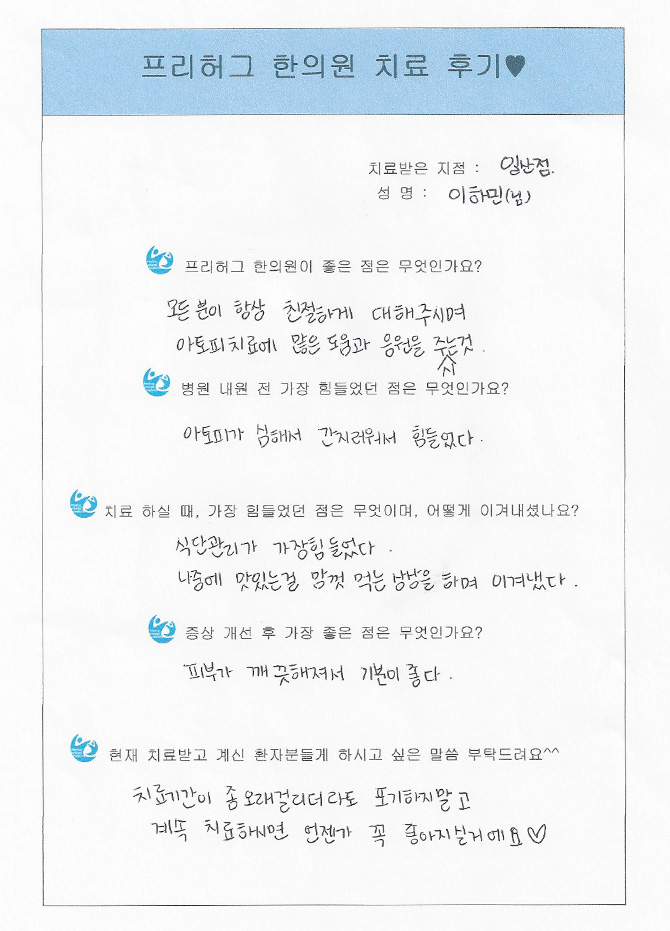 프리허그 한의원 치료 후기♥
치료받은 지점 : 일산점.
성 명 : 이하민(님)
프리허그 한의원이 좋은 점은 무엇인가요?
모든 분이 항상 친절하게 대해주시며
아토피치료에 많은 도움과 응원을 주시는것.
병원 내원 전 가장 힘들었던 점은 무엇인가요?
아토피가 심해서 간지러워서 힘들었다.
치료 하실 때, 가장 힘들었던 점은 무엇이며, 어떻게 이겨내셨나요?
식단관리가 가장힘들었다.
나중에 맛있는걸 맘껏 먹는 상상을 하며 이겨냈다.
증상 개선 후 가장 좋은 점은 무엇인가요?
피부가 깨끗해져서 기분이 좋다.
현재 치료받고 계신 환자분들게 하시고 싶은 말씀 부탁드려요^^
치료기간이 좀 오래걸리더라도 포기하지말고
계속 치료하시면 언젠가 꼭 좋아지실거에요♡